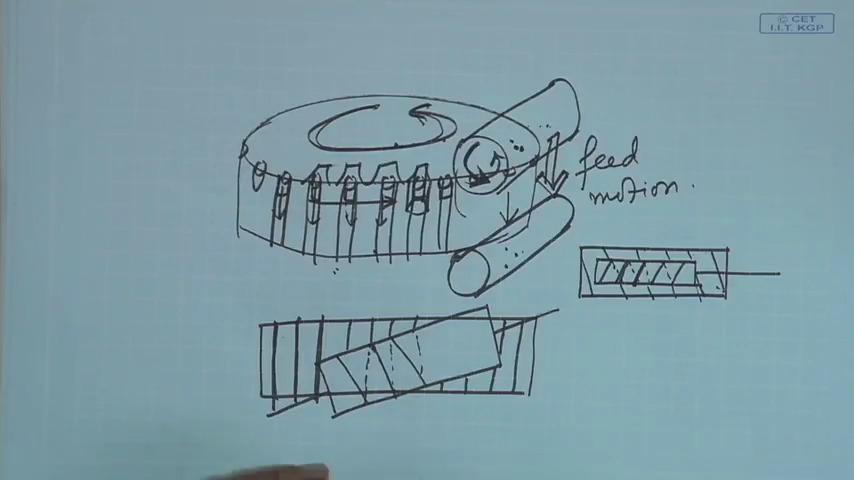 © CET
I.I.T. KGP
feed
motion.